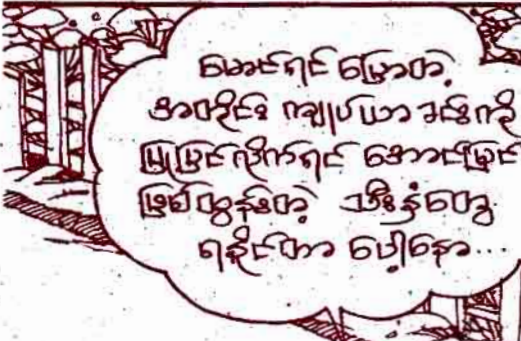 မောင်ရင် ပြောတဲ့
အတိုင်း ကျုပ်ယာခင်းကို
ပြုပြင်လိုက်ရင် အောင်မြင်
ဖြစ်ထွန်းတဲ့ သီးနှံတွေ
ရနိုင်တာ ပေါ့နော...